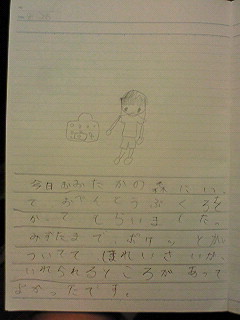 今日おみたかの森にいっ
て おでんとうぶくろを
かって もらいました。
みずたまで、ポケットが
ついてて ほれいざいが
いれられるところがあって
よかったです。